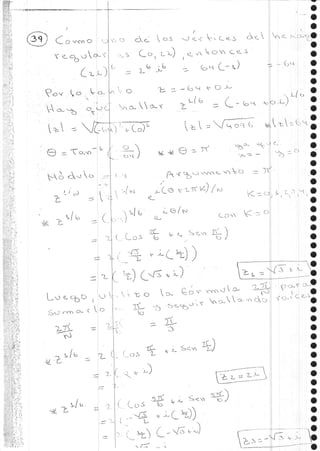 39 Como uno de los vértices del
regular es (0,2i), entonces
(2i)^6 = 2^6 i^6 = 64(-1) = -64
Por lo tanto z = -64 + 0i
Hay que hallar z^1/6 = (-64 + 0i)^1/6
|z| = √(-64)² + (0)² |z| = √4096 |z| = 64
θ = Tan⁻¹ (0/64) ** θ = π ya que x = - y = 0
Módulo = 64 Argumento = π
z^1/N = |z|^1/N e^i(θ+2πK)/N K=0,1,2,3,
* z^1/6 = (64)^1/6 e^iθ/N con K=0
= 2 (Cos π/6 + i Sen π/6)
= 2 (√3/2 + i(1/2))
= 2 (1/2) (√3 + i) z₁ = √3 + i
Luego, utilizo la fórmula 2π/N para
sumarlo π/6 y seguir hallando raíces
2π/N = 2π/6 = π/3
* z^1/6 = 2 (Cos π/2 + i Sen π/2)
= 2 ( + i)
= 2 z₂ = 2i
* z^1/6 = 2 (Cos 5π/6 + i Sen 5π/6)
= 2 (-√3/2 + i(1/2))
= 2 (1/2) (-√3 + i)
z₃ = -√3 + i